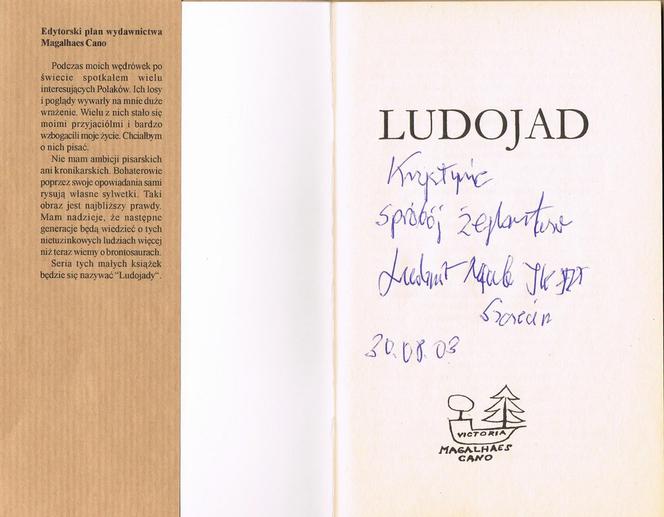 Edytorski plan wydawnictwa
Magalhaes Cano
Podczas moich wędrówek po
świecie spotkałem wielu
interesujących Polaków. Ich losy
i poglądy wywarły na mnie duże
wrażenie. Wielu z nich stało się
moimi przyjaciółmi i bardzo
wzbogacili moje życie. Chciałbym
o nich pisać.
Nie mam ambicji pisarskich
ani kronikarskich. Bohaterowie
poprzez swoje opowiadania sami
rysują własne sylwetki. Taki
obraz jest najbliższy prawdy.
Mam nadzieje, że następne
generacje będą wiedzieć o tych
nietuzinkowych ludziach więcej
niż teraz wiemy o brontosaurach.
Seria tych małych książek
będzie się nazywać “Ludojady“.
LUDOJAD
Krystynie
spróbój
Szczecin
30.08.03
VICTORIA
MAGALHAES
CANO